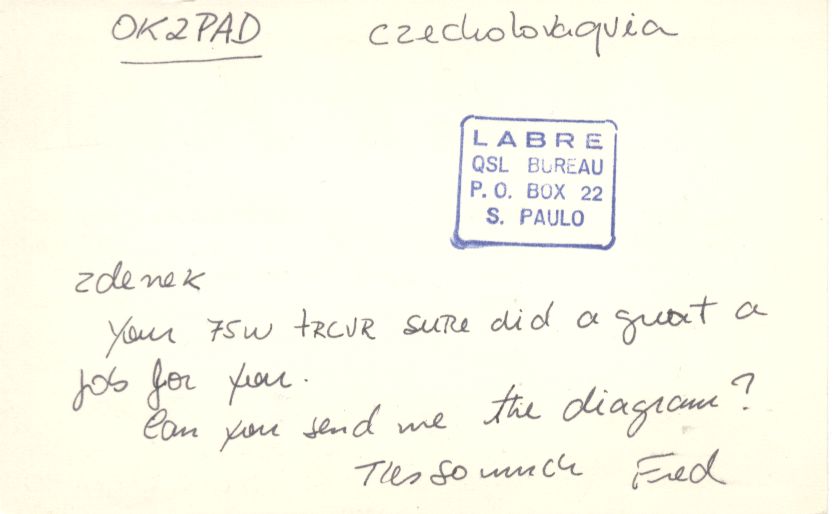 OK2PAD czecholovaquia
LABRE
QSL BUREAU
P. O. BOX 22
S. PAULO
zdenek
Your 75W tRCVR SURE did a great a
job for you.
Can you send me the diagram?
Tks so much Fred